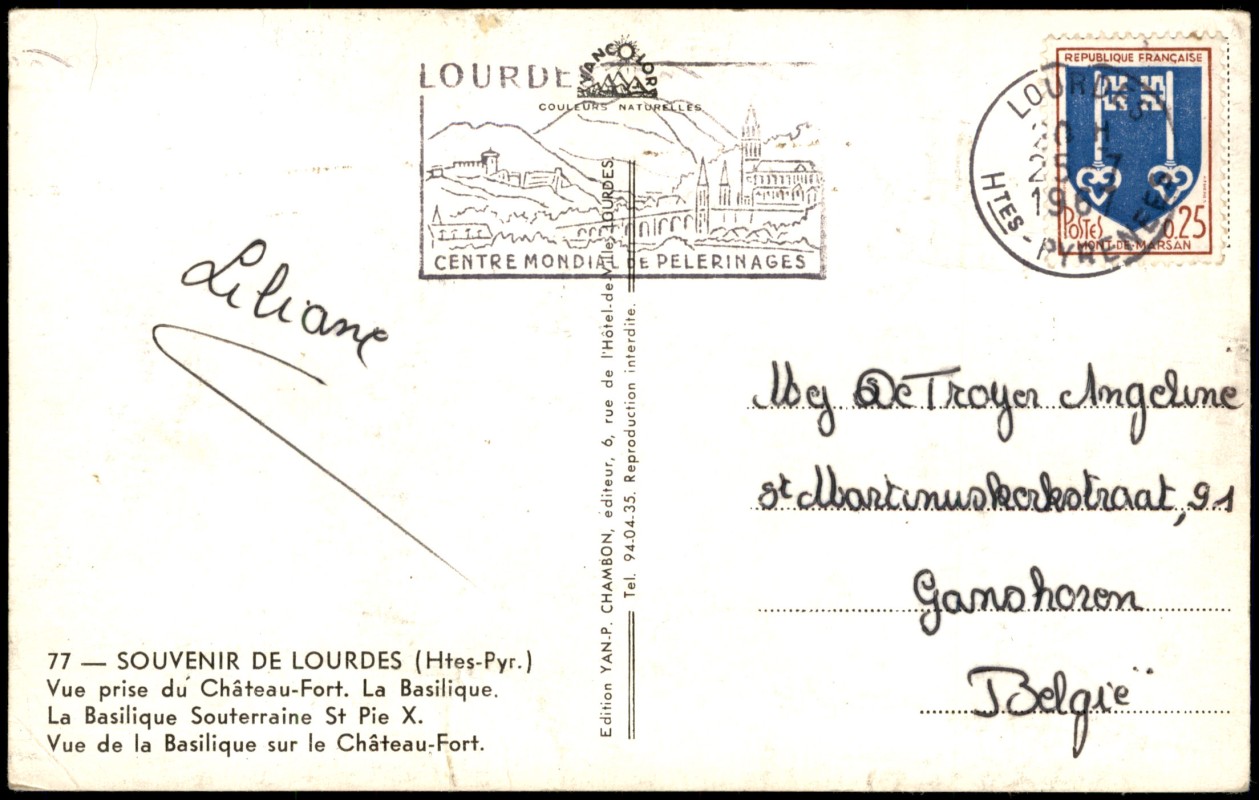 LOURDE
YANCOLOR
COULEURS NATURELLES
CENTRE MONDIAL DE PELERINAGES
LOURDES
H
5-7
1967
HTES-PYRENEES
REPUBLIQUE FRANÇAISE
POSTES
0,25
MONT-DE-MARSAN
Liliane
Edition YAN-P. CHAMBON, éditeur, 6, rue de l'Hôtel-de-Ville, LOURDES.
Tel. 94.04.35. Reproduction interdite.
Mej De Troyer Angeline
st Martinuskerkstraat, 91
Ganshoren
België
77 — SOUVENIR DE LOURDES (Htes-Pyr.)
Vue prise du Château-Fort. La Basilique.
La Basilique Souterraine St Pie X.
Vue de la Basilique sur le Château-Fort.